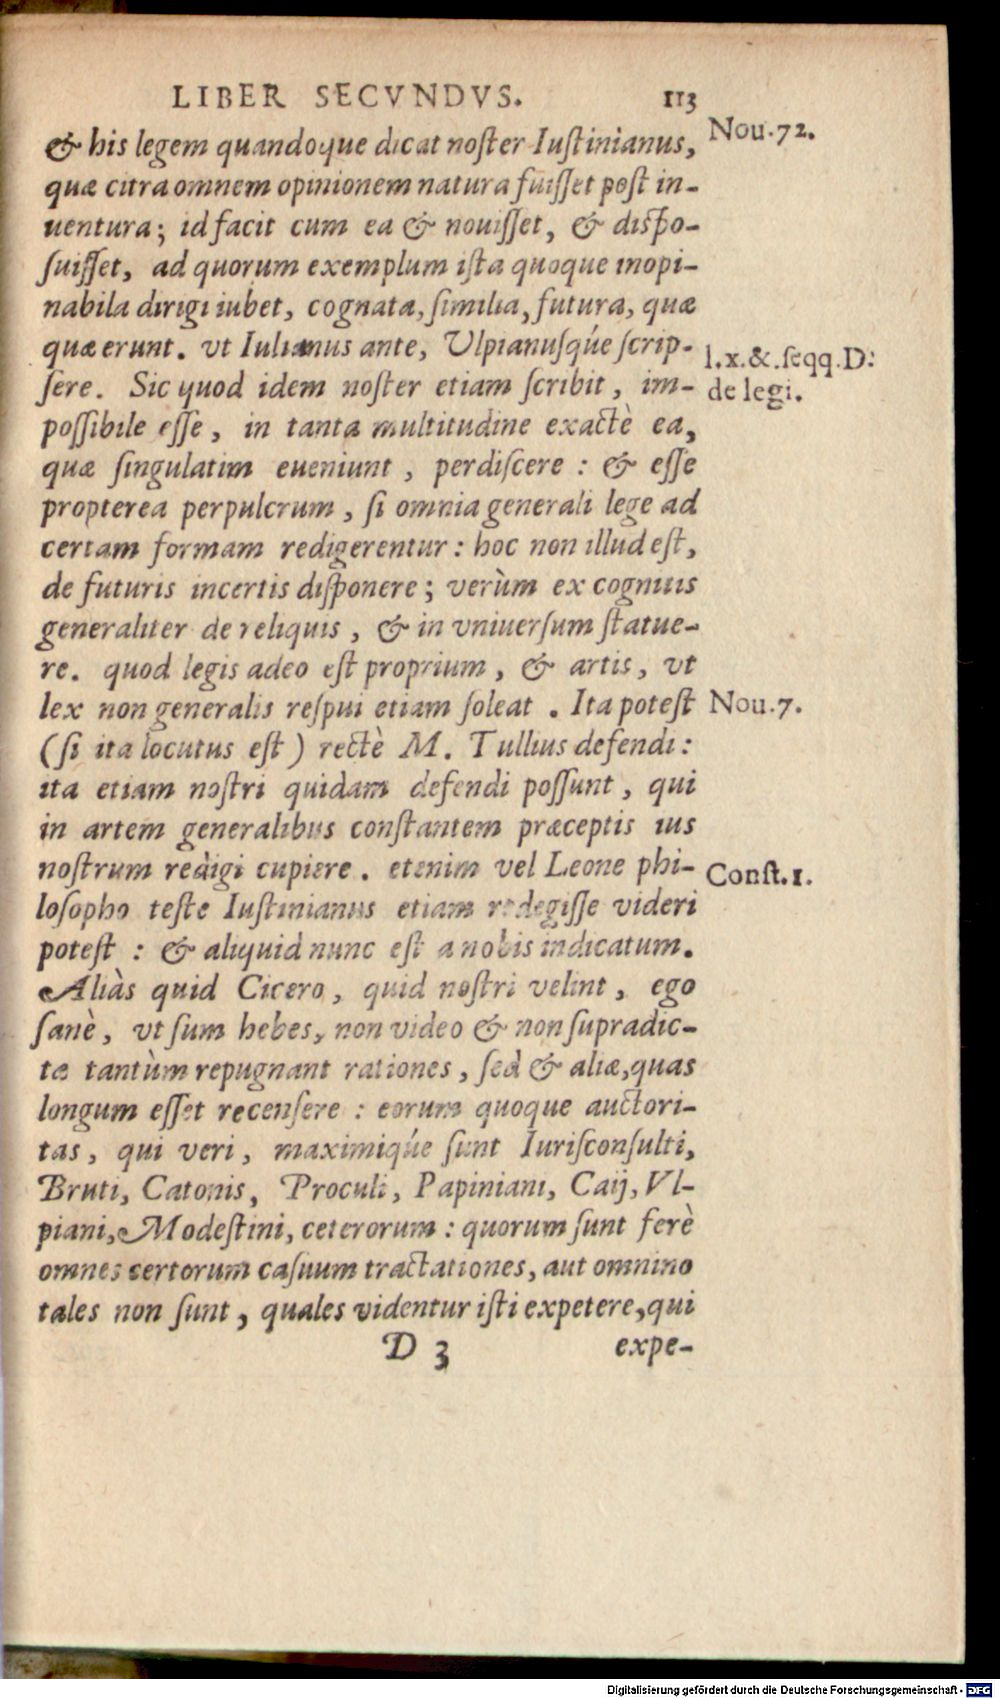 LIBER SECVNDVS. 113
& his legem quandoque dicat noſter Iuſtinianus, Nou.72.
quæ citra omnem opinionem natura fuiſſet poſt in-
uentura; id facit cum ea & nouiſſet, & diſpo-
ſuiſſet, ad quorum exemplum iſta quoque inopi-
nabila dirigi iubet, cognata, ſimilia, futura, quæ
quæ erunt. vt Iulianus ante, Vlpianuſqúe ſcrip- l.x.&.ſeqq.D:
ſere. Sic quod idem noſter etiam ſcribit, im- de legi.
poſſibile eſſe, in tanta multitudine exactè ea,
quæ ſingulatim eueniunt, perdiſcere: & eſſe
propterea perpulcrum, ſi omnia generali lege ad
certam formam redigerentur: hoc non illud eſt,
de futuris incertis diſponere; verùm ex cognitis
generaliter de reliquis, & in vniuerſum ſtatue-
re. quod legis adeo eſt proprium, & artis, vt
lex non generalis reſpui etiam ſoleat. Ita poteſt Nou.7.
(ſi ita locutus eſt) rectè M. Tullius defendi:
ita etiam noſtri quidam defendi poſſunt, qui
in artem generalibus conſtantem præceptis ius
noſtrum redigi cupiere. etenim vel Leone phi- Conſt.1.
loſopho teſte Iuſtinianus etiam redegiſſe videri
poteſt: & aliquid nunc eſt a nobis indicatum.
Aliàs quid Cicero, quid noſtri velint, ego
ſanè, vt ſum hebes, non video & non ſupradic-
tæ tantùm repugnant rationes, ſed & aliæ, quas
longum eſſet recenſere: eorum quoque auctori-
tas, qui veri, maximiqúe ſunt Iuriſconſulti,
Bruti, Catonis, Proculi, Papiniani, Caij, Vl-
piani, Modeſtini, ceterorum: quorum ſunt ferè
omnes certorum caſuum tractationes, aut omnino
tales non ſunt, quales videntur iſti expetere, qui
D 3 expe-
Digitalisierung gefördert durch die Deutsche Forschungsgemeinschaft - DFG